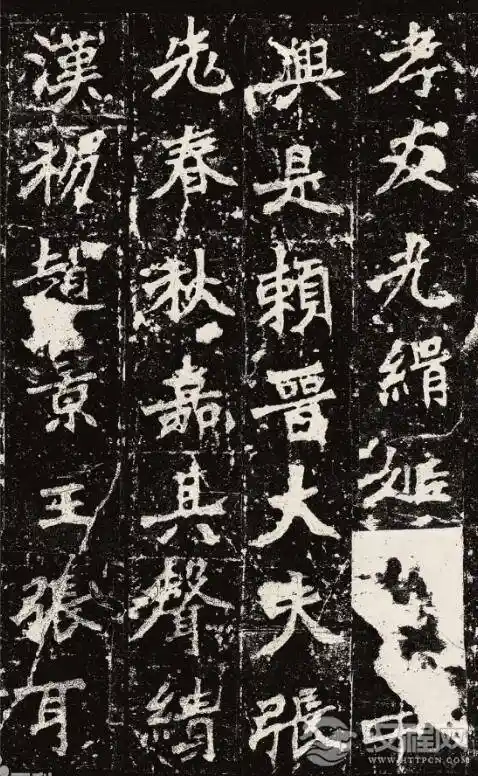 孝友光緝姬中
興是賴晉大夫張
老春秋嘉其聲績
漢初趙景王張耳
汉程网
WWW.HTTPCN.COM